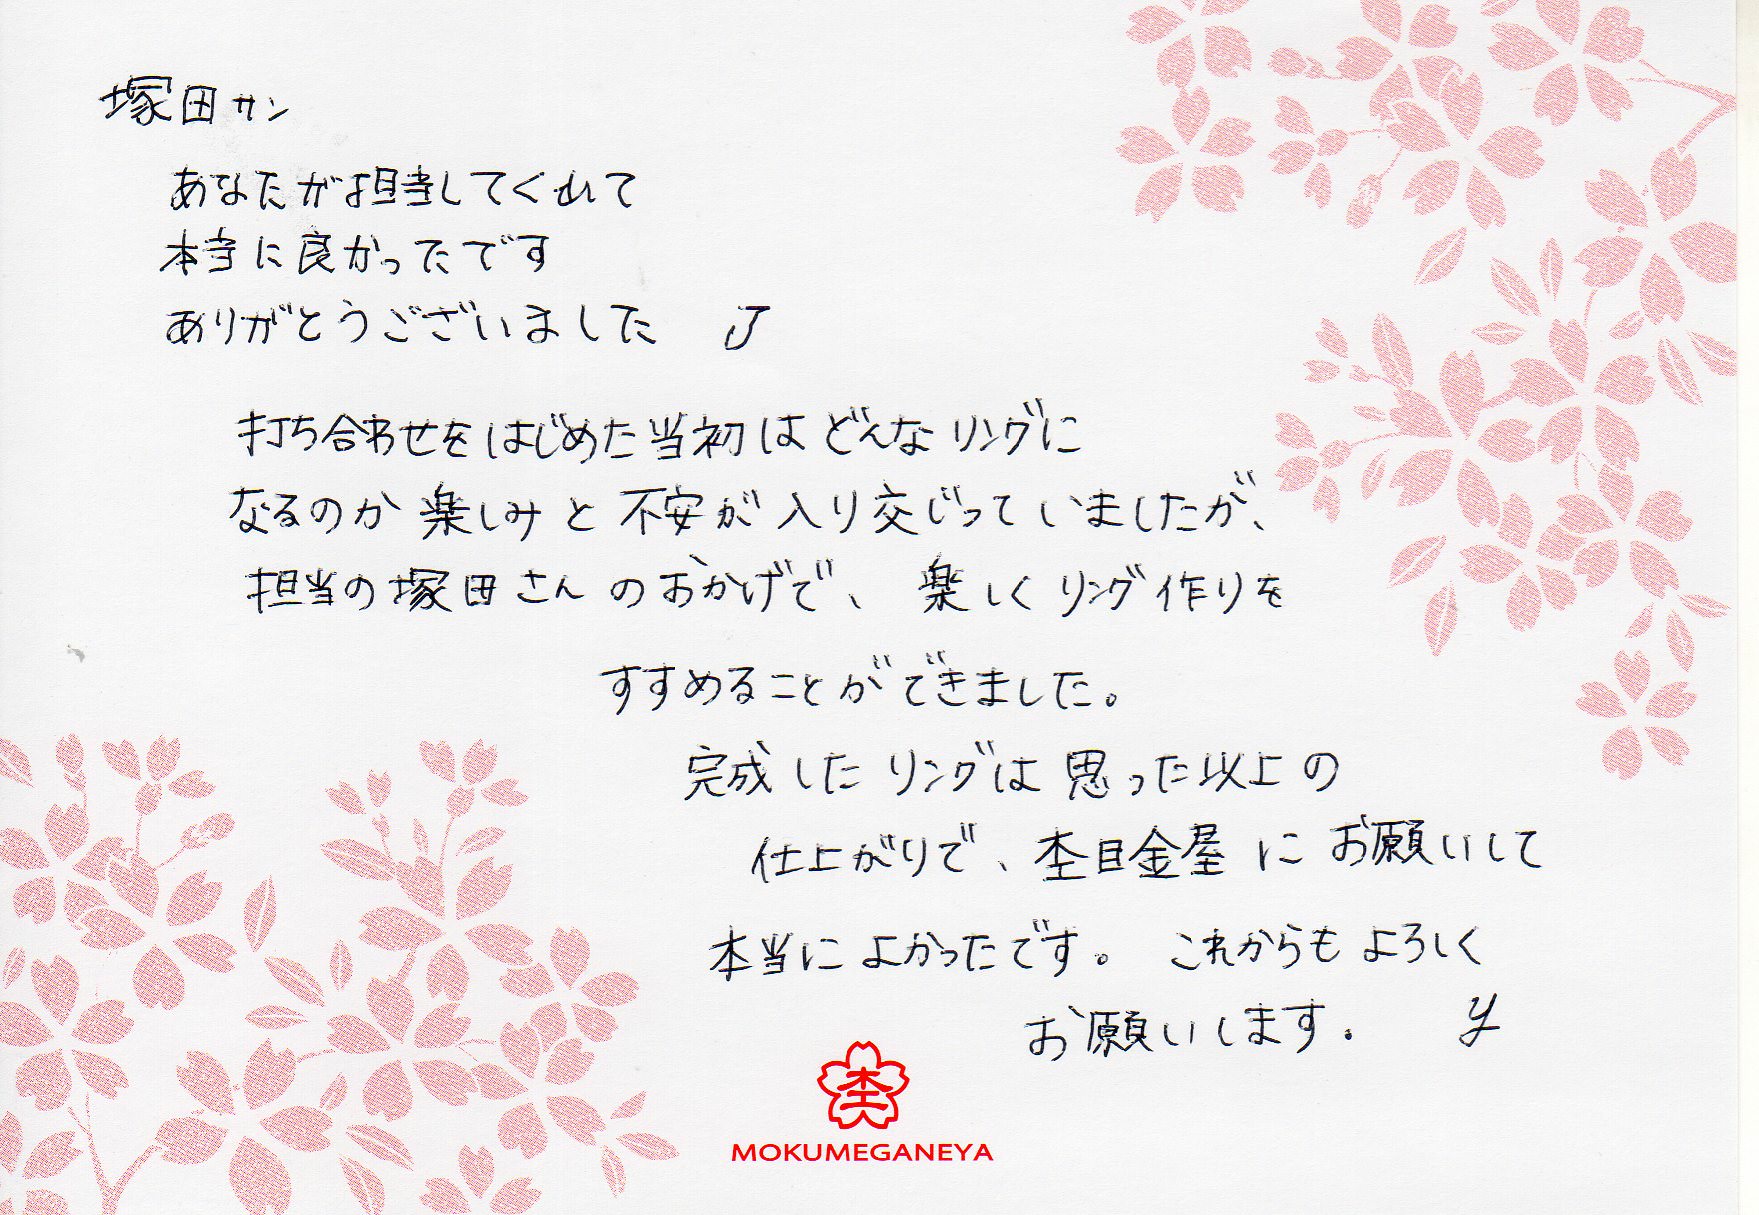 塚田サン
あなたが担当してくれて
本当に良かったです
ありがとうございました J
打ち合わせをはじめた当初は どんなリングに
なるのか 楽しみと 不安が 入り交じっていましたが、
担当の塚田さんのおかげで、 楽しくリング作りを
すすめることができました。
完成した リングは 思った以上の
仕上がりで、杢目金屋に お願いして
本当に よかったです。 これからも よろしく
お願いします. y
杢
MOKUMEGANEYA